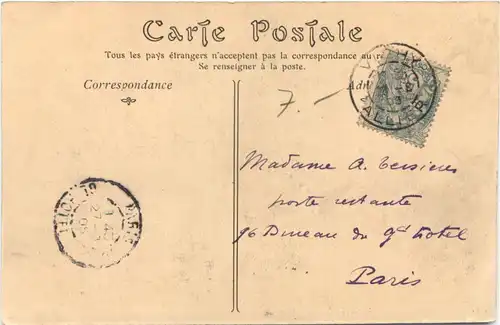 Carte Postale
Tous les pays étrangers n'acceptent pas la correspondance au
Se renseigner à la poste.
Correspondance
7. -
ALLIER
Madame A. Tersieres
poste restante
96 Bureau du gd hotel
Paris
PARIS